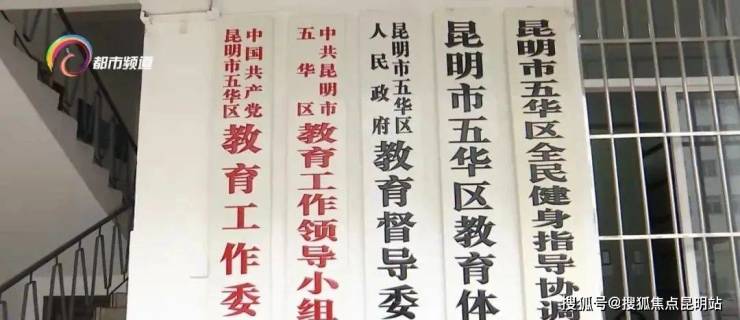 都市频道
中国共产党
昆明市五华区
教育工作委
中共昆明市
五华区
教育工作领导小组
昆明市五华区
人民政府
教育督导委
昆明市五华区教育体
昆明市五华区全民健身指导协调
搜狐号@搜狐焦点昆明站